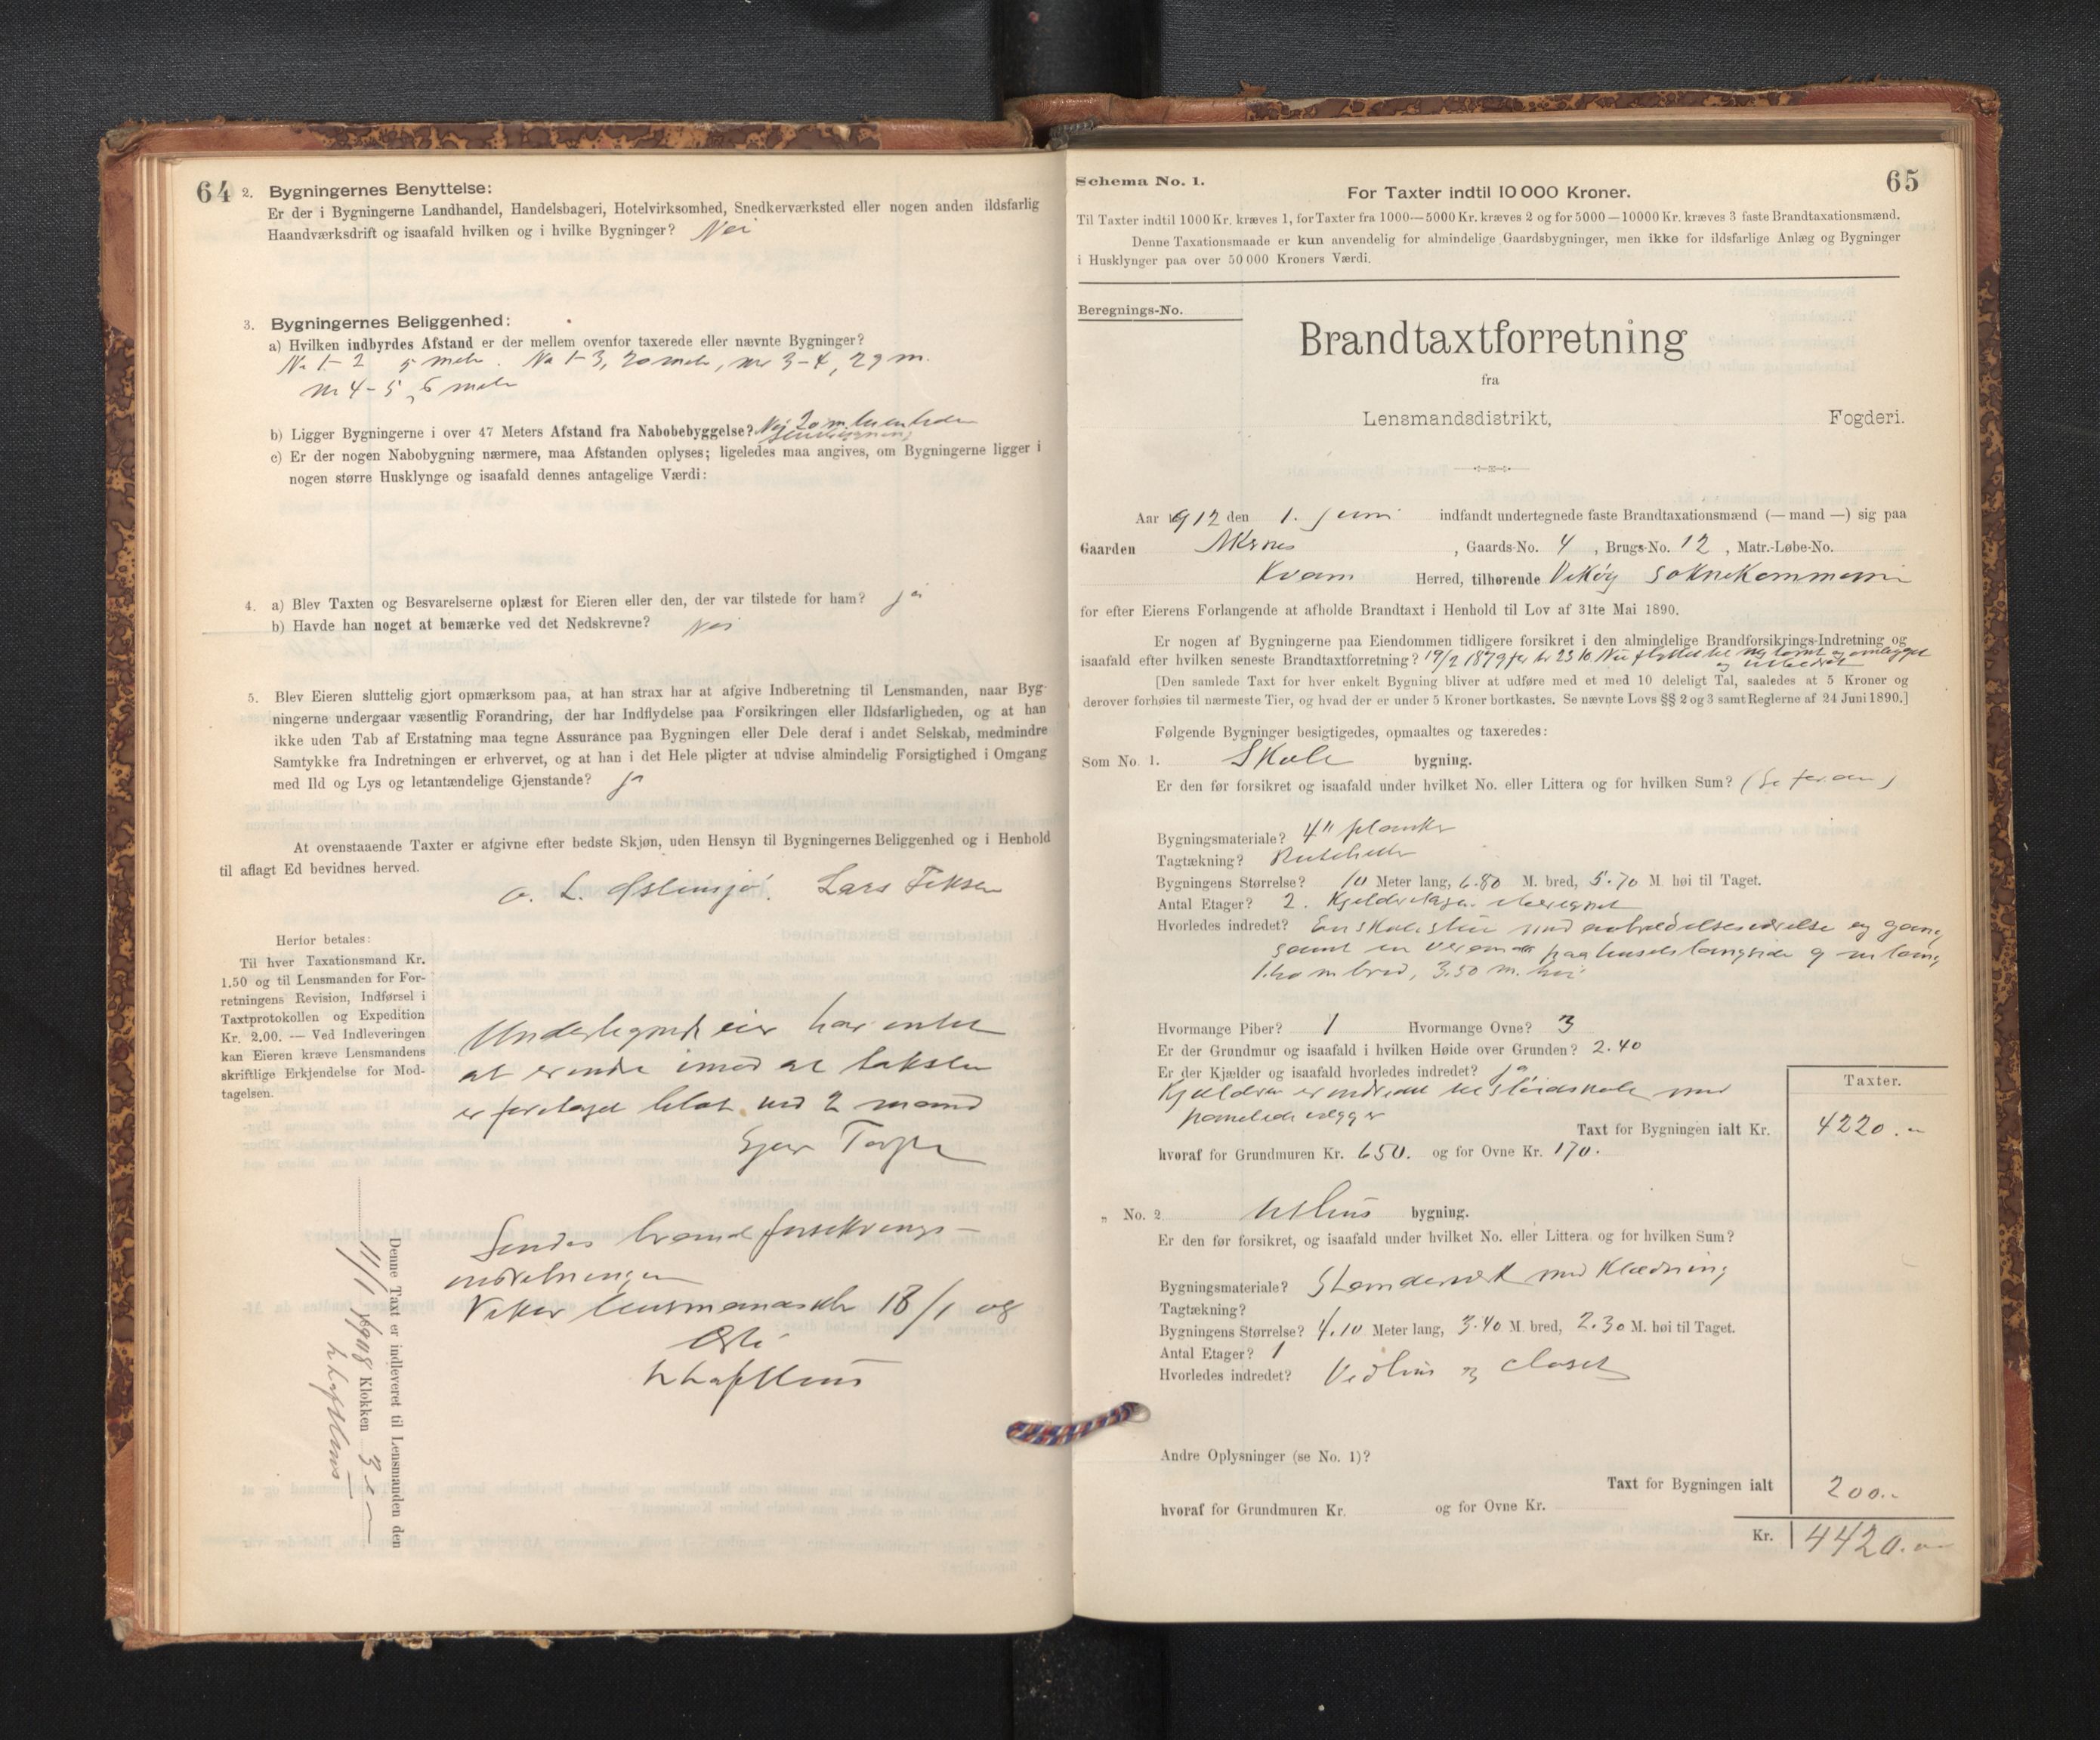 64
2. Bygningernes Benyttelse:
Er der i Bygningerne Landhandel, Handelsbageri, Hotelvirksomhed, Snedkerværksted eller nogen anden ildsfarlig
Haandværksdrift og isaafald hvilken og i hvilke Bygninger? Nei
3. Bygningernes Beliggenhed:
a) Hvilken indbyrdes Afstand er der mellem ovenfor taxerede eller nævnte Bygninger?
No 1-2 5 meter. No 1-3, 20 meter, nr 3-4, 29 m.
nr 4-5, 6 meter
b) Ligger Bygningerne i over 47 Meters Afstand fra Nabobebyggelse? Nei 20 m
c) Er der nogen Nabobygning nærmere, maa Afstanden oplyses; ligeledes maa angives, om Bygningerne ligger i
nogen større Husklynge og isaafald dennes antagelige Værdi:
4. a) Blev Taxten og Besvarelserne oplæst for Eieren eller den, der var tilstede for ham? ja
b) Havde han noget at bemærke ved det Nedskrevne? Nei
5. Blev Eieren sluttelig gjort opmærksom paa, at han strax har at afgive Indberetning til Lensmanden, naar Byg-
ningerne undergaar væsentlig Forandring, der har Indflydelse paa Forsikringen eller Ildsfarligheden, og at han
ikke uden Tab af Erstatning maa tegne Assurance paa Bygningen eller Dele deraf i andet Selskab, medmindre
Samtykke fra Indretningen er erhvervet, og at han i det Hele pligter at udvise almindelig Forsigtighed i Omgang
med Ild og Lys og letantændelige Gjenstande? ja
At ovenstaaende Taxter er afgivne efter bedste Skjøn, uden Hensyn til Bygningernes Beliggenhed og i Henhold
til aflagt Ed bevidnes herved.
O. L. Østensjø. Lars Teksen
Herfor betales:
Til hver Taxationsmand Kr.
1.50 og til Lensmanden for For-
retningens Revision, Indførsel i
Taxtprotokollen og Expedition
Kr. 2.00. — Ved Indleveringen
kan Eieren kræve Lensmandens
skriftlige Erkjendelse for Mod-
tagelsen.
Undertegnede eier har intet
at erindre imod at taksten
er foretaget blot ved 2 mand
Sendes brandforsikrings-
indretningen
Vikør lensmandsdr 18/1 08
L Laflhus
Denne Taxt er indleveret til Lensmanden den
11/1 1908 Klokken 3
65
Schema No. 1.
For Taxter indtil 10 000 Kroner.
Til Taxter indtil 1000 Kr. kræves 1, for Taxter fra 1000—5000 Kr. kræves 2 og for 5000—10000 Kr. kræves 3 faste Brandtaxationsmænd.
Denne Taxationsmaade er kun anvendelig for almindelige Gaardsbygninger, men ikke for ildsfarlige Anlæg og Bygninger
i Husklynger paa over 50 000 Kroners Værdi.
Beregnings-No.
Brandtaxtforretning
fra
Lensmandsdistrikt, Fogderi.
Aar 1912 den 1. juni indfandt undertegnede faste Brandtaxationsmænd (— mand —) sig paa
Gaarden Aksnes, Gaards-No. 4, Brugs-No. 12, Matr.-Løbe-No.
Kvam Herred, tilhørende Vikøy soknekommune
for efter Eierens Forlangende at afholde Brandtaxt i Henhold til Lov af 31te Mai 1890.
Er nogen af Bygningerne paa Eiendommen tidligere forsikret i den almindelige Brandforsikrings-Indretning og
isaafald efter hvilken seneste Brandtaxtforretning? 19/2 1879 for kr 2310. Nu flyttet til ny tomt og ombygget
og utbedret
[Den samlede Taxt for hver enkelt Bygning bliver at udføre med et med 10 deleligt Tal, saaledes at 5 Kroner og
derover forhøies til nærmeste Tier, og hvad der er under 5 Kroner bortkastes. Se nævnte Lovs §§ 2 og 3 samt Reglerne af 24 Juni 1890.]
Følgende Bygninger besigtigedes, opmaaltes og taxeredes:
Som No. 1. Skole bygning.
Er den før forsikret og isaafald under hvilket No. eller Littera og for hvilken Sum? (Se foran)
Bygningsmateriale? 4" planker
Tagtækning? Ruteheller
Bygningens Størrelse? 10 Meter lang, 6.80 M. bred, 5.70 M. høi til Taget.
Antal Etager? 2. Kjelderetagen iberegnet
Hvorledes indredet? En skolestue med arbeidelsesværelse og gang
samt en veranda paa husets langside 9 m lang
1.40 m bred, 3.50 m. høi
Hvormange Piber? 1 Hvormange Ovne? 3
Er der Grundmur og isaafald i hvilken Høide over Grunden? 2.40
Er der Kjælder og isaafald hvorledes indredet? ja
Kjælderen er indredet til sløidskole med
panelede vægger
Taxter.
Taxt for Bygningen ialt Kr. 4220.-
hvoraf for Grundmuren Kr. 650. og for Ovne Kr. 170.
„ No. 2. Uthus bygning.
Er den før forsikret, og isaafald under hvilket No. eller Littera og for hvilken Sum?
Bygningsmateriale? Stenderverk med Klædning
Tagtækning?
Bygningens Størrelse? 4.10 Meter lang, 3.40 M. bred, 2.30 M. høi til Taget.
Antal Etager? 1
Hvorledes indredet? Vedhus og closet
Andre Oplysninger (se No. 1)?
Taxt for Bygningen ialt 200.-
hvoraf for Grundmuren Kr. og for Ovne Kr.
Kr. 4420.-